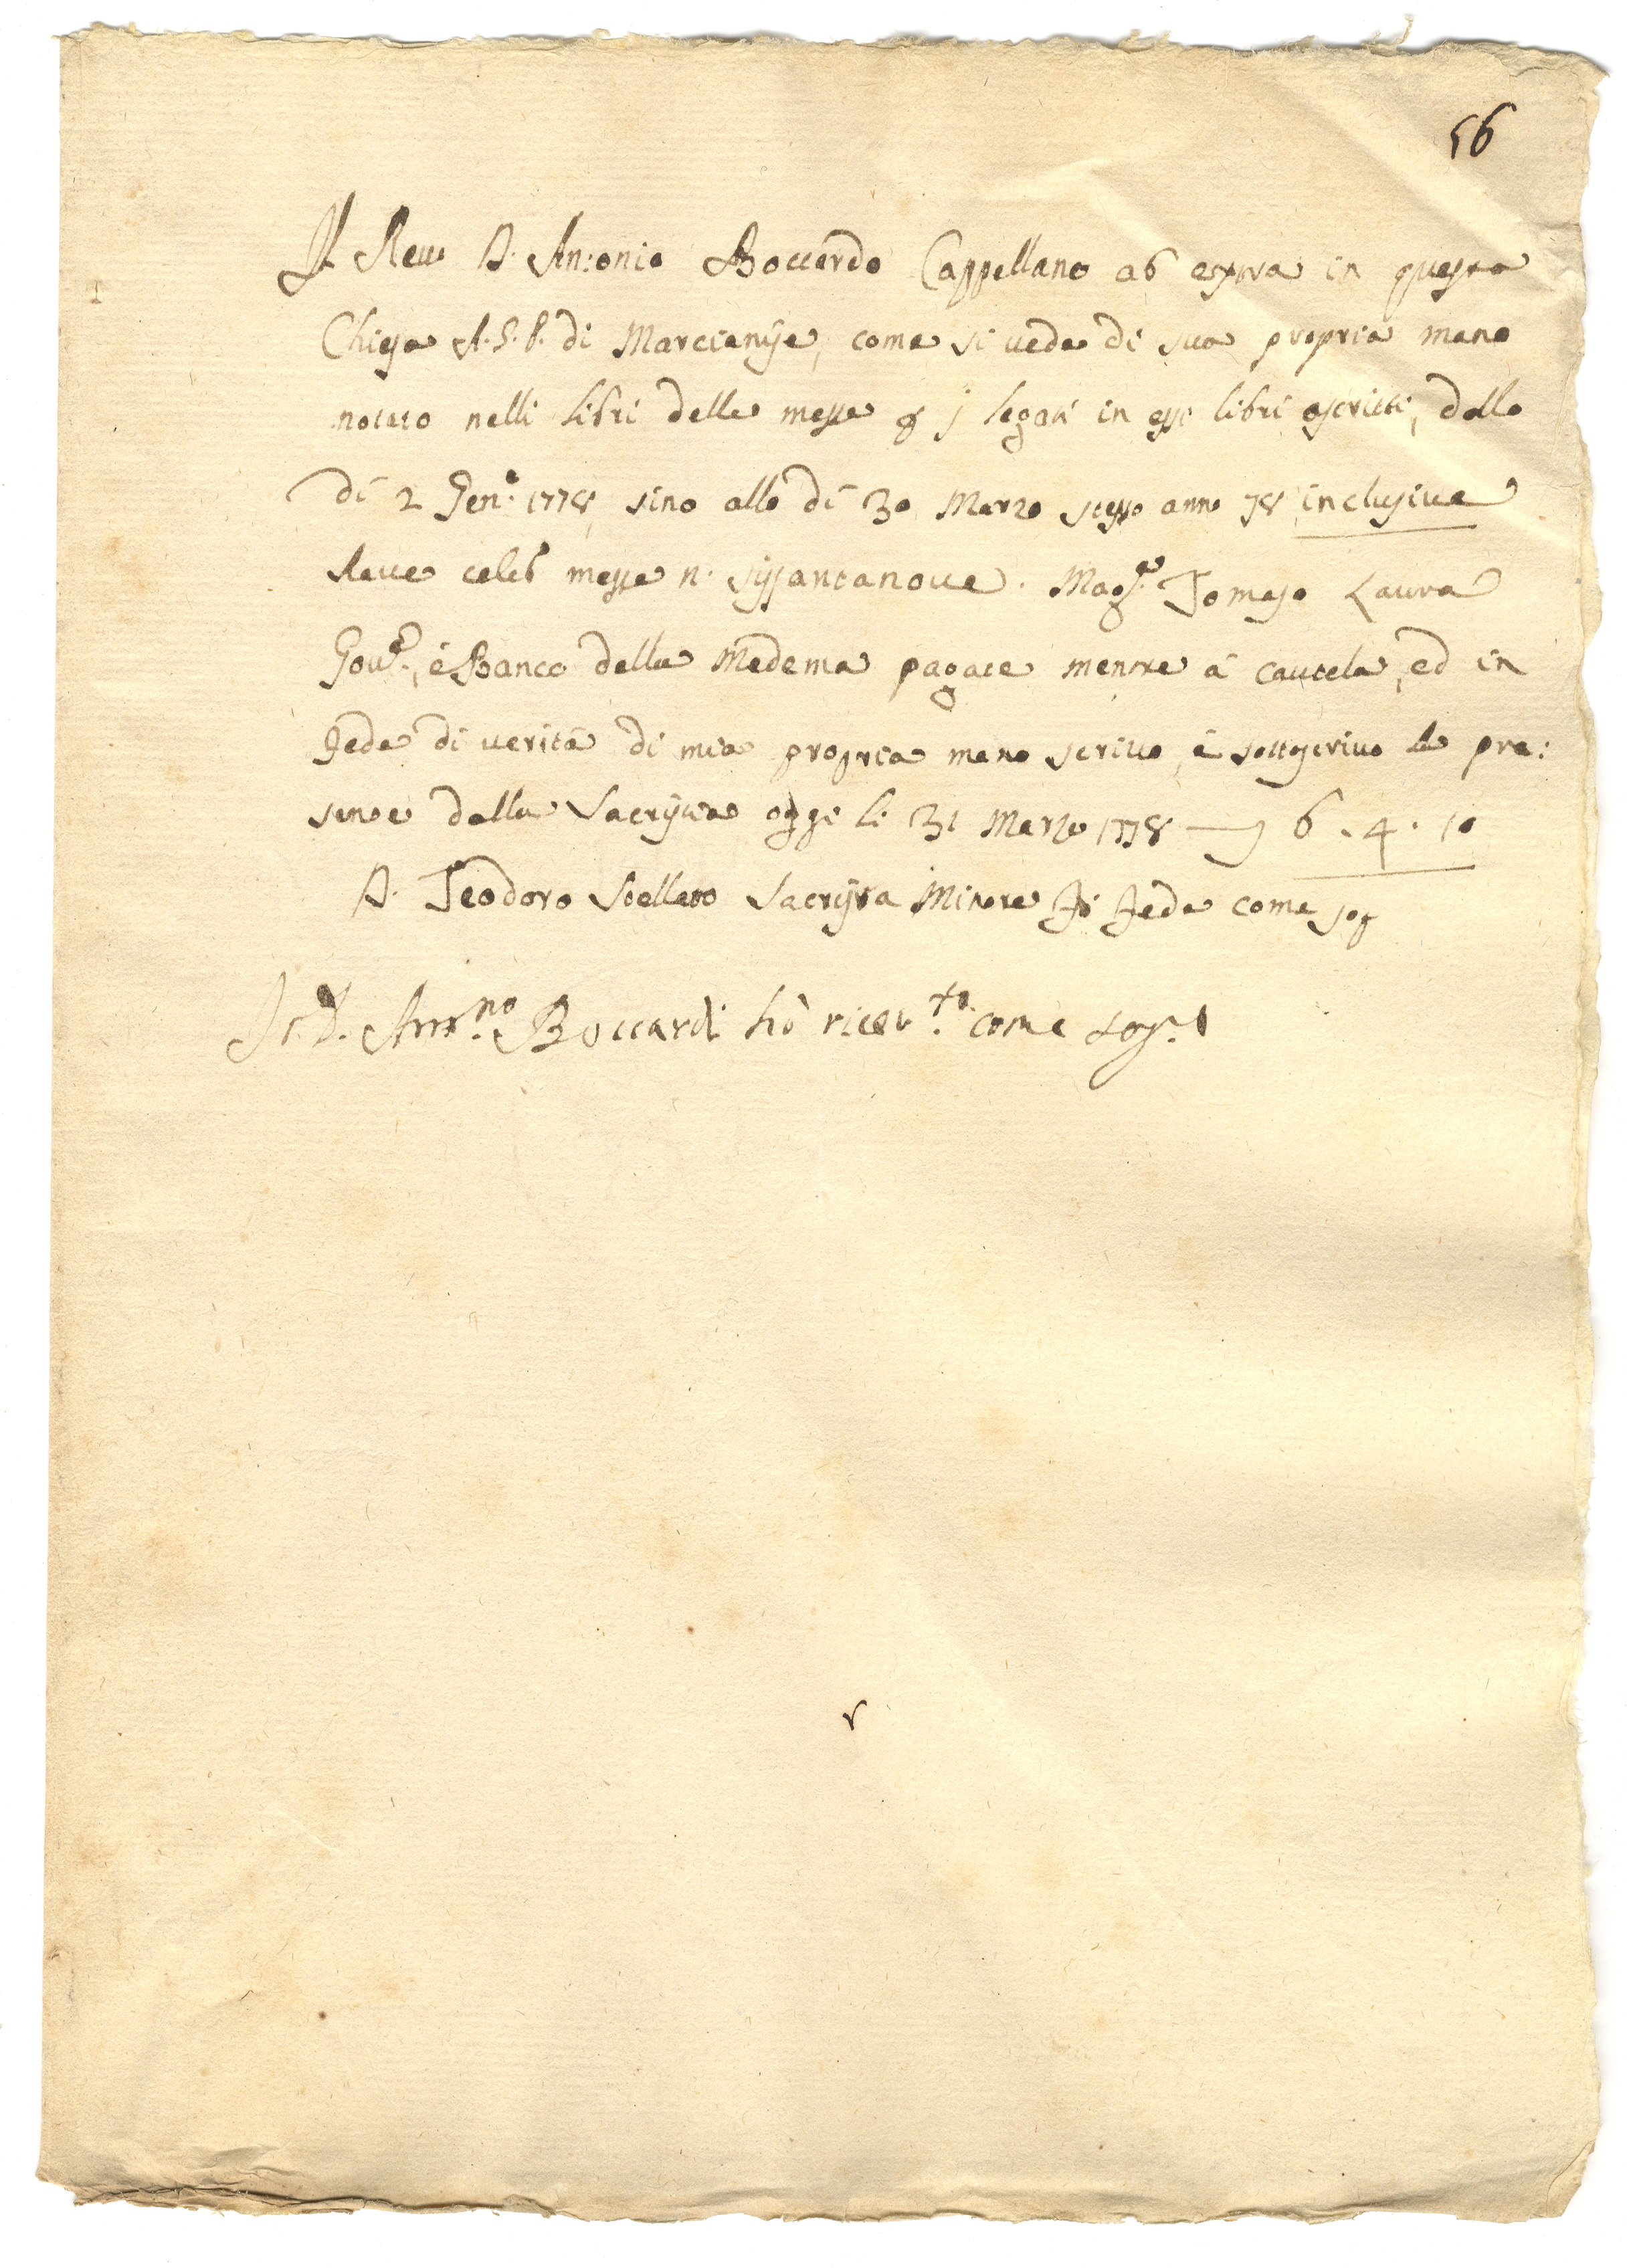 56
Il Reu D. Antonio Boccardo Cappellano ab extra in questa
Chiesa A.G.P. di Marcianise, come si vede di sua propria mano
notato nelli libri delle messe p i legati in essi libri ascritti, dalli
di 2 Gen.e 1778, sino alli di 30 Marzo stesso anno 78 inclusive
have celeb messe n. sissantanove. Mag.co Tomaso Laura
Gov.e, è Banco della Medema pagate mentre à cautela, ed in
fede di verità di mia propria mano scrivo, è sottoscrivo la pre:
sente dalla Sacristia oggi li 31 Marzo 1778 — 6 . 4 . 10
D. Teodoro Stellato Sacrista Minore fò fede come sop
Io D. Ant.no Boccardi hò ricev.to come sop.a